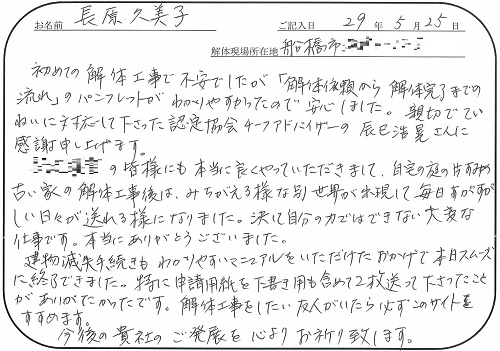 お名前 長原久美子 ご記入日 29年5月25日
解体現場所在地 船橋市
初めての解体工事で不安でしたが「解体依頼から解体完了までの
流れ」のパンフレットがわかりやすかったので安心しました。親切でてい
ねいに対応して下さった認定協会チーフアドバイザーの辰巳浩晃さんに
感謝申し上げます。
の皆様にも本当に良くやっていただきまして、自宅の庭の片すみの
古い家の解体工事後は、みちがえる様な別世界が出現して毎日すがすが
しい日々が送れる様になりました。決して自分の力ではできない大変な
仕事です。本当にありがとうございました。
建物滅失手続きもわかりやすいマニュアルをいただけたおかげで本日スムーズ
に終了できました。特に申請用紙を下書き用も含めて2枚送って下さったこと
がありがたかったです。解体工事をしたい友人がいたら必ずこのサイトを
すすめます。
今後の貴社のご発展を心よりお祈り致します。